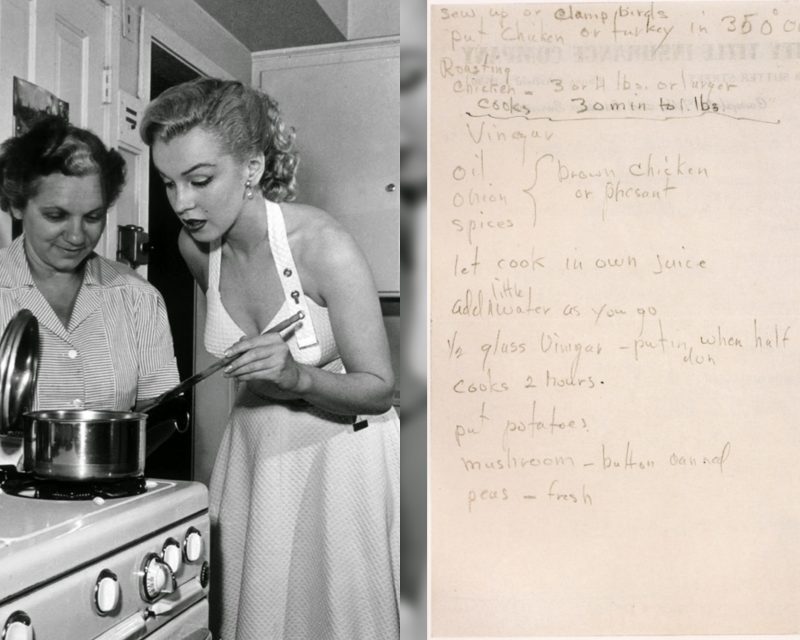 sew up or clamp birds
put Chicken or turkey in 350°
Roasting
Chicken - 3 or 4 lbs. or larger
cooks 30 min to 1 lbs.
Vinegar
oil
onion
spices
brown chicken
or phesant
let cook in own juice
add little water as you go
1/2 glass Vinigar - put in when half
don
cooks 2 hours.
put potatoes
mushroom - button canned
peas - fresh